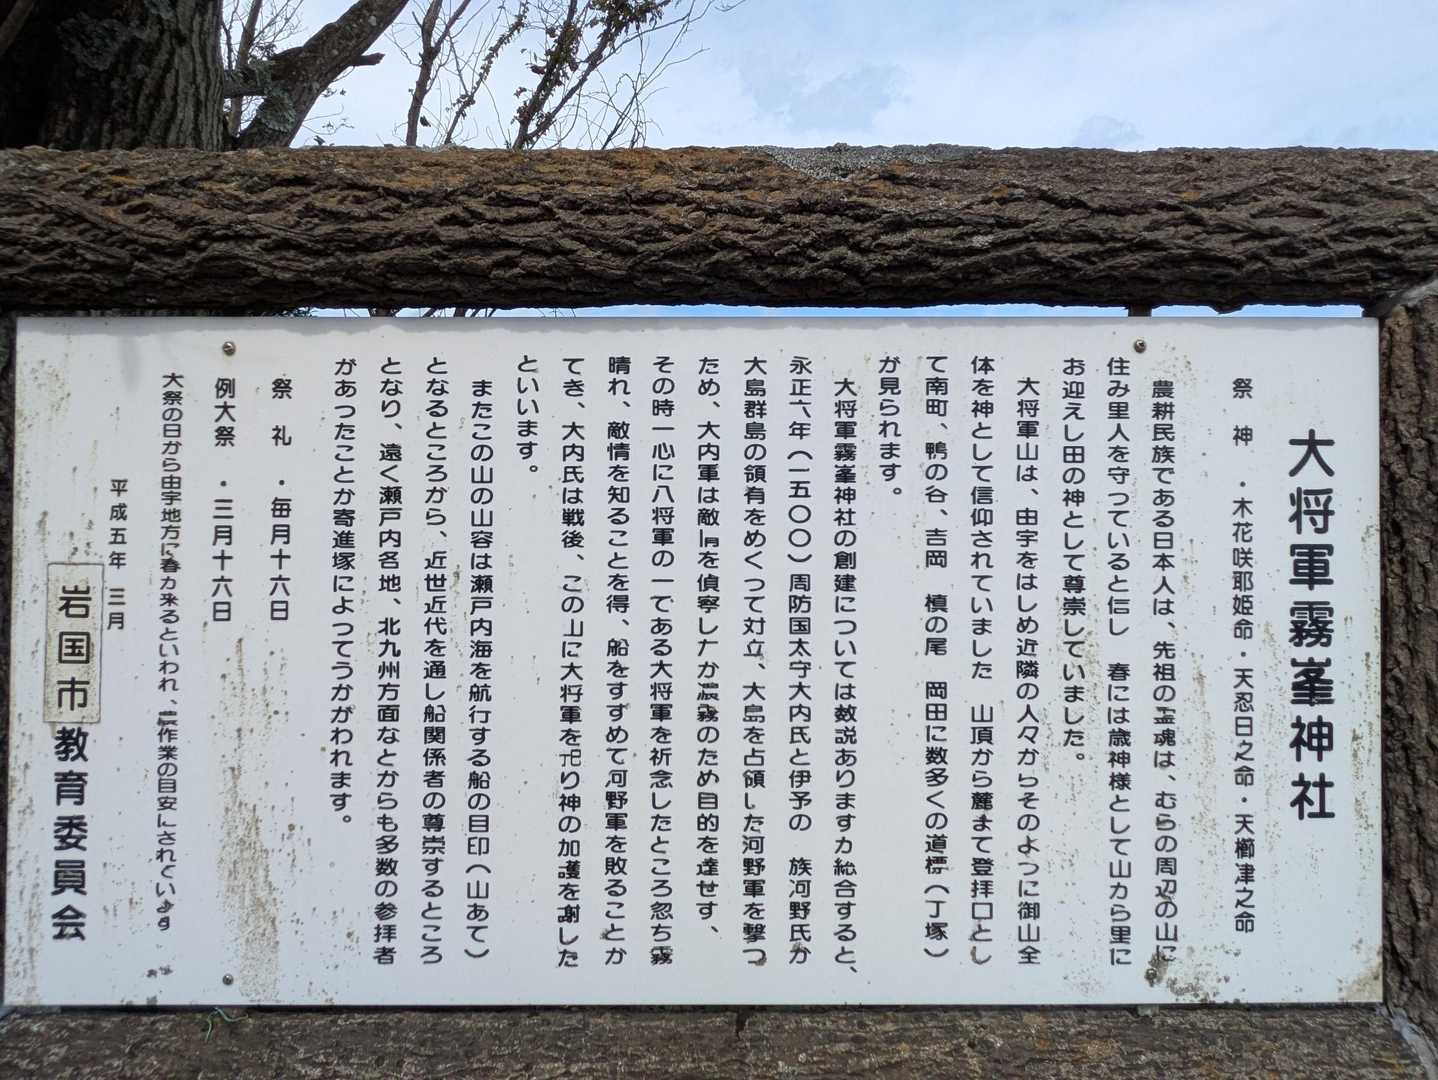 大将軍霧峯神社
祭神・木花咲耶姫命・天忍日之命・天櫛津之命
農耕民族である日本人は、先祖の霊魂は、むらの周辺の山に
住み里人を守っていると信し　春には歳神様として山から里に
お迎えし田の神として尊崇していました。
大将軍山は、由宇をはしめ近隣の人々からそのように御山全
体を神として信仰されていました　山頂から麓まて登拝口とし
て南町、鴨の谷、吉岡　槙の尾　岡田に数多くの道標（丁塚）
が見られます。
大将軍霧峯神社の創建については数説ありますか総合すると、
永正六年（一五〇〇）周防国太守大内氏と伊予の　族河野氏か
大島群島の領有をめくって対立、大島を占領した河野軍を撃つ
ため、大内軍は敵情を偵察したか濃霧のため目的を達せす、
その時一心に八将軍の一である大将軍を祈念したところ忽ち霧
晴れ、敵情を知ることを得、船をすすめて河野軍を敗ることか
てき、大内氏は戦後、この山に大将軍を祀り神の加護を謝した
といいます。
またこの山の山容は瀬戸内海を航行する船の目印（山あて）
となるところから、近世近代を通し船関係者の尊崇するところ
となり、遠く瀬戸内各地、北九州方面なとからも多数の参拝者
があったことか寄進塚によってうかがわれます。
祭礼・毎月十六日
例大祭・三月十六日
大祭の日から由宇地方に春か来るといわれ、農作業の目安にされています
平成五年　三月
岩国市教育委員会